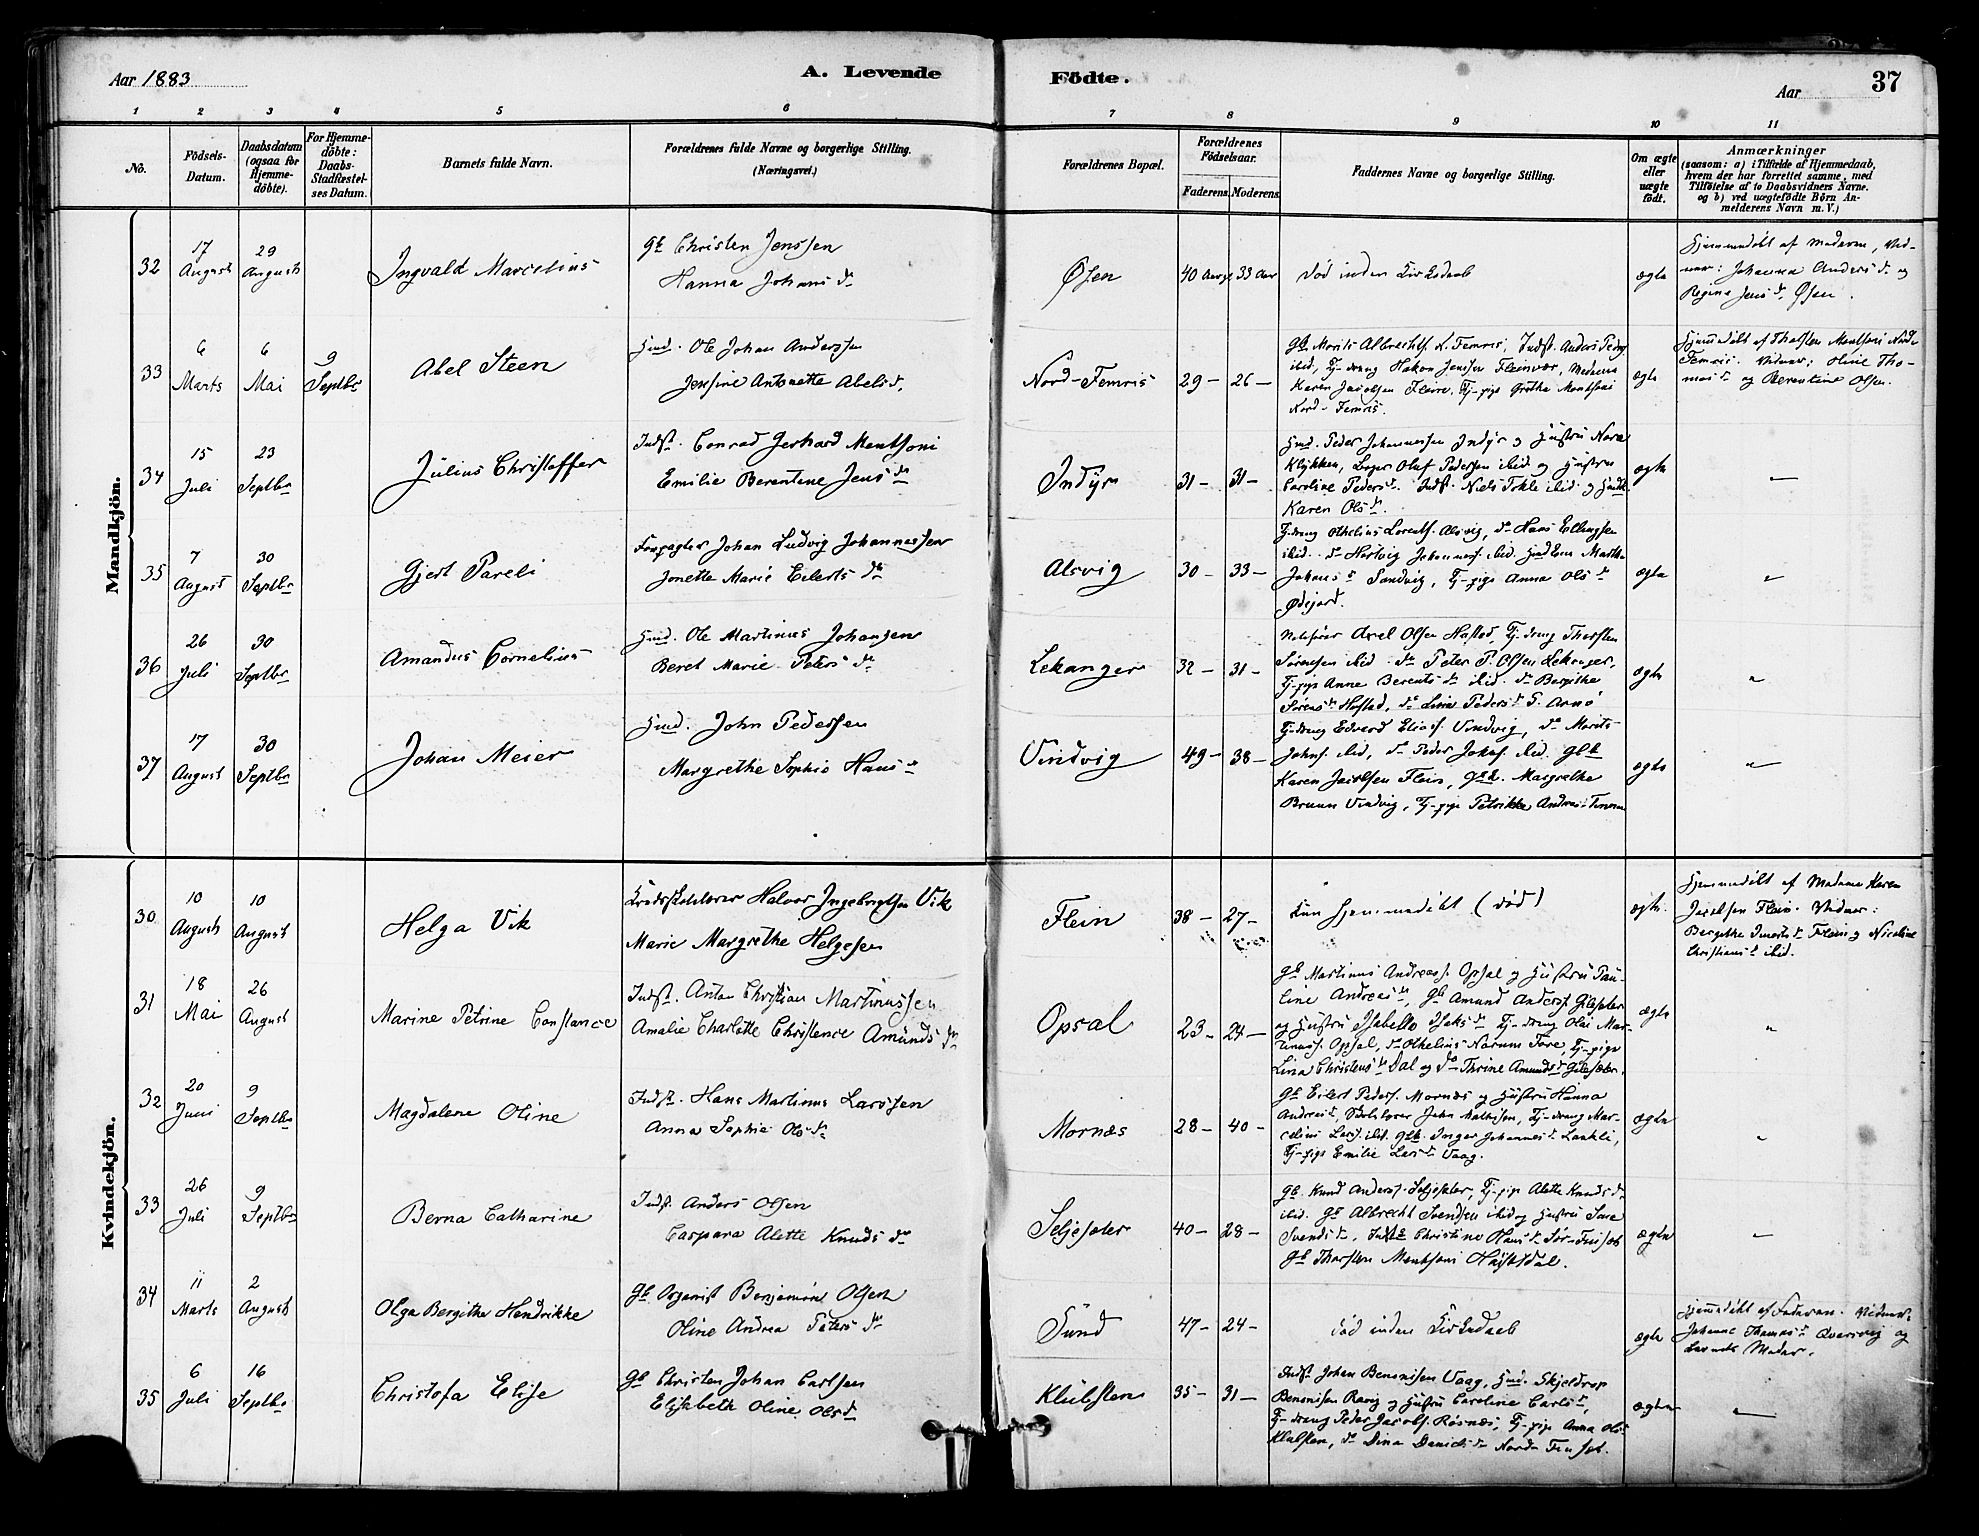 Aar 1883
A. Levende
Födte.
Aar
37
1 2 3 4 5 6 7 8 9 10 11
No.
Födsels-
Datum.
Daabsdatum
(ogsaa for
Hjemme-
döbte).
For Hjemme-
döbte:
Daabs-
Stadfæstel-
ses Datum.
Barnets fulde Navn.
Forældrenes fulde Navne og borgerlige Stilling.
(Næringsvei.)
Forældrenes Bopæl.
Forældrenes
Födselsaar.
Faderens. Moderens.
Faddernes Navne og borgerlige Stilling.
Om ægte
eller
uægte
födt.
Anmærkninger
(saasom: a) i Tilfælde af Hjemmedaab,
hvem der har forrettet samme, med
Tilföielse af to Daabsvidners Navne.
og b) ved uægtefödte Börn An-
melderens Navn m. V.)
Mandkjön.
32
17
August
29
August
Ingvald Marcelius
Gb Christen Jenssen
Hanna Johans dr
Øsen
40 Aar 33 Aar
død inden Kirkedaab
ægte
Hjemmedøbt af Moderen, Vid-
ner: Johanna Anders dr og
Regine Jens dr Øsen.
33
6
Marts
6
Mai
9
Septbr
Abel Steen
Gmd. Ole Johan Anderssen
Jensine Antonette Abels dr
Nord-Femris
29 - 26 -
Gb Morits Albrechts. N. Femris, Indst. Anders Peders
ibid, Tj-dreng Hakon Jenssen Fleinvær, Madame
Karen Jacobsen Flein, Tj-pige Grethe Mentsoni
Nord-Femris.
ægte
Hjemmedøbt af Thorsten Mentsoni Nord-
Femris. Vidner: Oline Tho-
mas dr og Berentine Olsen.
34
15
Juli
23
Septbr
Julius Christoffer
Indst. Conrad Gerhard Mentsoni
Emilie Berentine Jens dr
Indyr
31 - 31 -
Gmd. Peder Johannessen Indyr og Hustru Nora
Klykken, Lager Oluf Pedersen ibid og Hustru
Caroline Peders dr. Indst. Niels Tokle ibid og
Karen Ols dr.
ægte
"
35
7
August
30
Septbr
Gjert Pareli
Forpagter Johan Ludvig Johannessen
Jonette Marie Eilerts dr
Alsvig
30 - 33 -
Tj-dreng Othelius Lorents. Alsvig, do Hans Ellingsen
ibid. do Hartvig Johannes. ibid. Martha
Johans dr Sandvig, Tj-pige Anna Ols dr
Ødejord.
ægte
"
36
26
Juli
30
Septbr
Amandus Cornelius
Gmd. Ole Martinus Johansen
Beret Marie Peters dr
Lekanger
32 - 31 -
Notefører Axel Olsen Hafstad, Tj-dreng Thorsten
Sørensen ibid. do Peter P. Olsen Lekanger,
Tj-pige Anne Berents dr ibid. do Bergithe
Sørens dr Hafstad, do Lina Peders dr S. Arnø
ægte
"
37
17
August
30
Septbr
Johan Meier
Gmd. John Pedersen
Margrethe Sophie Hans dr
Vindvig
49 - 38 -
Tj-dreng Edvard Elias. Vindvig, do Morits
Johns. ibid, do Peder Johns. ibid. Gbk
Karen Jacobsen Flein, Gbk. Margrethe
Bruun Vindvig, Tj-pige Petrikke Andreas.
ægte
"
Kvindekjön.
30
10
August
10
August
Helga Vik
Kredsskolelærer Halvor Ingebrigtsen Vik
Marie Margrethe Helgesen
Flein
38 - 27 -
Kun hjemmedøbt (død)
ægte.
Hjemmedøbt af Madame Karen
Jacobsen Flein. Vidner:
Bergithe dr Flein og Nicoline
Christians dr ibid.
31
18
Mai
26
August
Marine Petrine Constance
Indst. Anton Christian Martinussen
Amalie Charlotte Christence Amunds dr
Opsal
23 - 24 -
Gb Martinus Andreas. Opsal og Hustru Pau-
line Andreas dr, Gb Amund Anders. Gilesæter
og Hustru Isabella Isaks dr Tj-dreng Olai Mar-
tinus. Opsal, do Othelius Narum Fore, Tj-pige
Lina Christens dr Dal og do Thrine Amunds dr Gilesæter.
ægte
"
32
20
Juni
9
Septbr
Magdalene Oline
Indst. Hans Martinus Larssen
Anna Sophie Ols dr
Mornæs
28 - 40 -
Gb Eilert Peders. Mornæs og Hustru Hanna
Andreas dr, Skolelærer John Mathisen, Tj-dreng Mar-
celius Lars. ibid. Gbk. Inger Johannes dr Laukli,
Tj-pige Emilie Lars dr Vaag.
ægte
"
33
26
Juli
9
Septbr
Berna Catharine
Indst. Anders Olsen
Caspara Alette Knuds dr
Seljesæter
40 - 28 -
Gb. Knud Anders. Seljesæter, Tj-pige Alette Knuds dr
ibid. Gb Albrecht Svendsen ibid og Hustru
Svends dr, Christine Hans dr Sør-
Gb Thorsten Mentsoni
ægte
"
34
11
Marts
2
August
Olga Bergitha Hendrikke
Gb. Organist Benjamin Olsen
Oline Andrea Peters dr
Sund
47 - 24 -
død inden Kirkedaab
ægte
Hjemmedøbt af Faderen. Vidner:
Johanne Thomas dr Qvarsvig og
Barnets Moder.
35
6
Juli
16
Septbr
Christofa Elise
Gb Christen Johan Carlsen
Elisabeth Oline Ols dr
Klubsten
35 - 31 -
Indst Johan Benonisen Vaag, Gmd. Skjeldrop
Benonisen Ravig og Hustru Caroline Carls dr,
Tj-dreng Peder Jacobs. Røsnæs, Tj-pige Anna Ols dr
Klubsten, do Dina Daniels dr Nord-
ægte
"